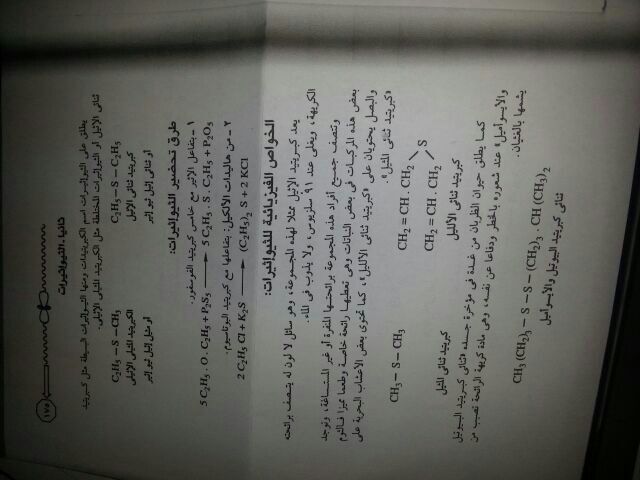 ١٧٥
ثانيا . الثيوإثيرات
يطلق على الثيوإثيرات اسم الكبريتيدات ومنها الثيوإثيرات البسيطة مثل كبريتيد
ثنائى الإثيل أو الثيوإثيرات المختلطة مثل الكبريتيد المثيلى الإثيلى.
C₂H₅ – S – CH₃ C₂H₅ – S – C₂H₅
الكبريتيد المثيلى الإثيلى كبريتيد ثنائى الإثيل
أو مثيل إثيل ثيو إثير أو ثنائى إثيل ثيو إثير
طرق تحضير الثيوإثيرات:
١ - بتفاعل الإثير مع خامس كبريتيد الفوسفور.
5 C₂H₅ . O . C₂H₅ + P₂S₅ → 5 C₂H₅ . S . C₂H₅ + P₂O₅
٢ - من هاليدات الألكيل: بتفاعلها مع كبريتيد البوتاسيوم.
2 C₂H₅ Cl + K₂S → (C₂H₅)₂ S + 2 KCl
الخواص الفيزيائية للثيوإثيرات:
يعد كبريتيد الإثيل مثلا لهذه المجموعة، وهو سائل لا لون له يتصف برائحته
الكريهة، ويغلى عند ٩١ سلزيوس، ولا يذوب فى الماء.
وتتصف جميع أفراد هذه المجموعة برائحتها المنفرة أو غير المستساغة، وتوجد
بعض هذه المركبات فى بعض النباتات وهى تعطيها رائحة خاصة وطعما مميزا فالثوم
والبصل يحتويان على «كبريتيد ثنائى الألليل»، كما تحتوى بعض الأعشاب البحرية على
«كبريتيد ثنائى المثيل».
CH₃ – S – CH₃
CH₂ = CH . CH₂
S
CH₂ = CH . CH₂
كبريتيد ثنائى المثيل كبريتيد ثنائى الألليل
كما يطلق حيوان الظربان من غدة فى مؤخرة جسده «ثنائى كبريتيد البيوتيل
والأيسوأميل» عند شعوره بالخطر ودفاعا عن نفسه، وهى مادة كريهة الرائحة تصيب من
يشمها بالغثيان.
CH₃ (CH₂)₃ – S – S – (CH₂)₃ . CH (CH₃)₂
ثنائى كبريتيد البيوتيل والأيسوأميل